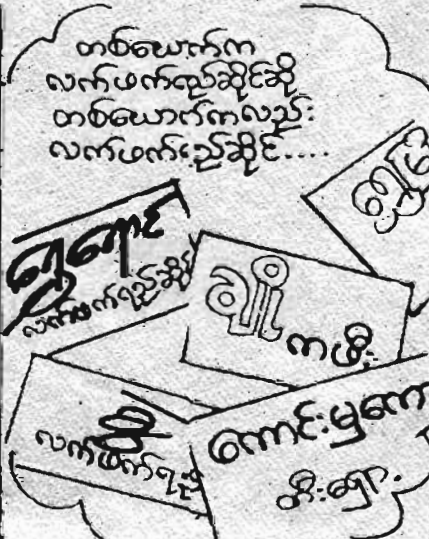 တစ်ယောက်က
လက်ဖက်ရည်ဆိုင်ဆို
တစ်ယောက်ကလည်း
လက်ဖက်ရည်ဆိုင်....
ရွှေရောင်
လက်ဖက်ရည်ဆိုင်
ချို
ကဖီး
လက်ဖက်ရည်
ကောင်းမှကော
တီးရှော့